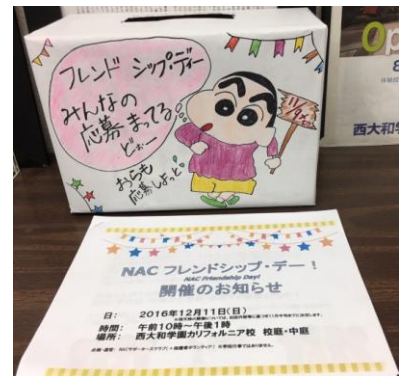 フレンド シップ・デー
みんなの
応募 まってる
どぉー
おらも
応募しよっと
11/9〆
Op
8
西大和学
NAC フレンドシップ・デー!
NAC Friendship Day!
開催のお知らせ
日: 2016年12月11日(日)
時間: 午前10時～午後1時
場所: 西大和学園カリフォルニア校 校庭・中庭